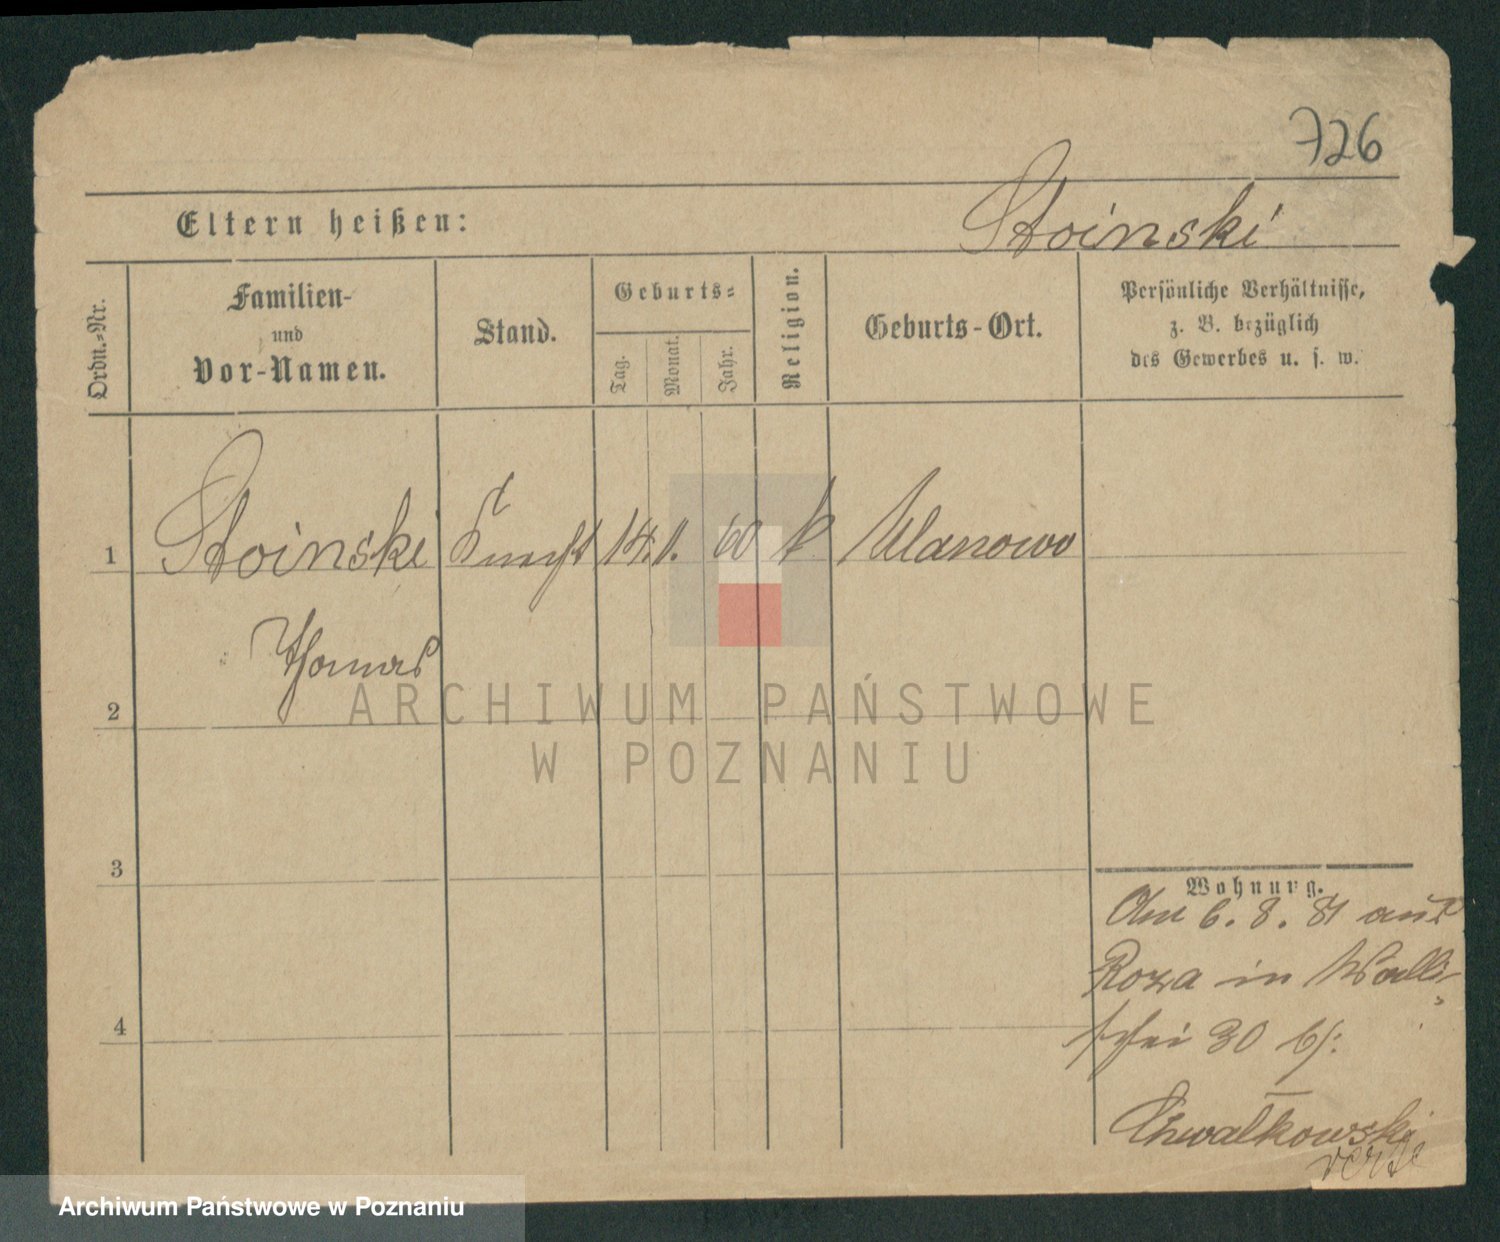 726
Eltern heißen: Stoinski
Ordn.-Nr.
Familien-
und
Vor-Namen.
Stand.
Geburts-
Tag.
Monat.
Jahr.
Religion.
Geburts-Ort.
Persönliche Verhältnisse,
z. B. bezüglich
des Gewerbes u. s. w.
1 Stoinski Knecht 14. 1. 60 k Ulanowo
Thomas
2
3
4
Wohnung.
Am 6. 8. 81 aus
Roza in Walli-
schei 30 b/:
Chwalkowski
ARCHIWUM PAŃSTWOWE
W POZNANIU
Archiwum Państwowe w Poznaniu